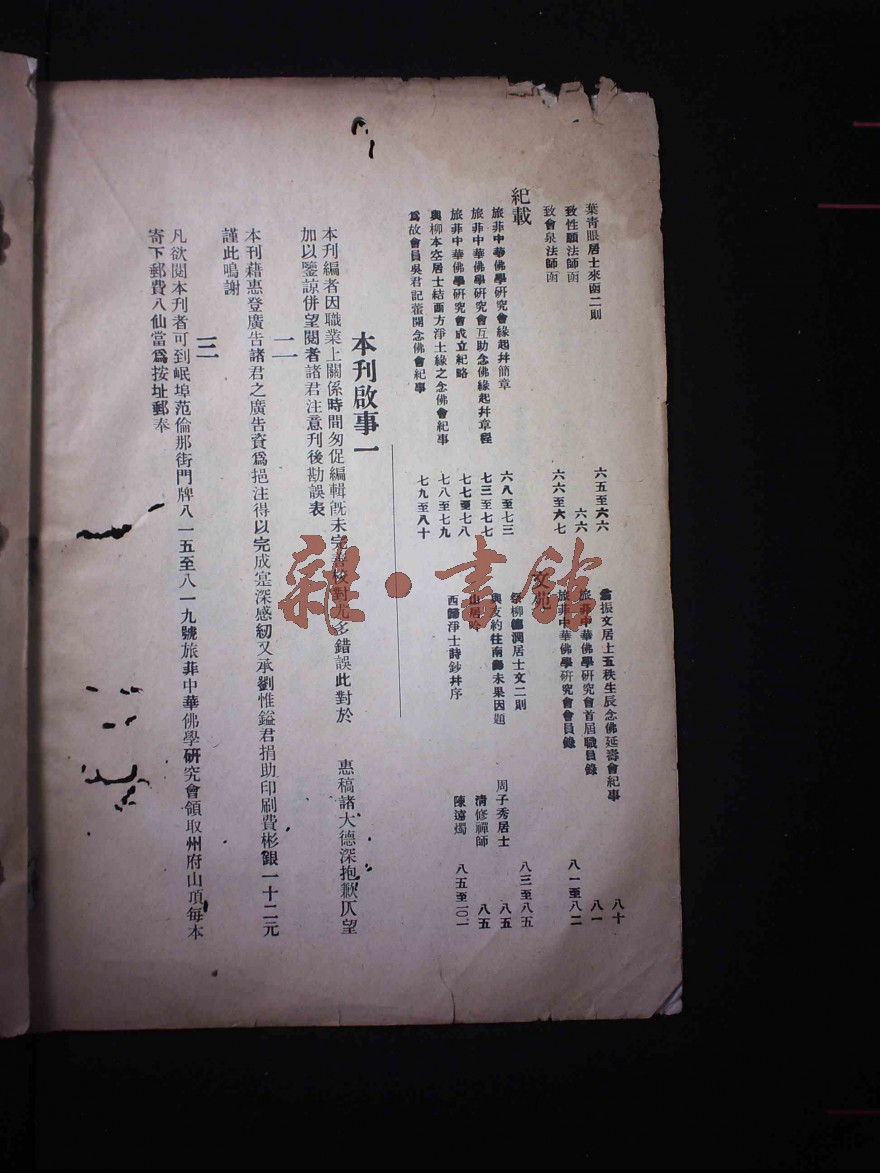 葉靑眼居士來函二則 六五至六六
致性願法師函 六六
致會泉法師函 六六至六七
紀載
旅菲中華佛學硏究會緣起幷簡章 六八至七三
旅菲中華佛學硏究會互助念佛緣起幷章程 七三至七七
旅菲中華佛學硏究會成立紀略 七七至七八
與柳本空居士結西方淨土緣之念佛會紀事 七八至七九
爲故會員吳君記藿開念佛會紀事 七九至八十
振文居士五秩生辰念佛延壽會紀事 八十
旅菲中華佛學硏究會首屆職員錄 八一
旅菲中華佛學硏究會會員錄 八一至八二
文苑
祭柳德潤居士文二則 八三至八五
與友約往南未果因題 周子秀居士 八五
山居吟 淸修禪師 八五
西歸淨土詩鈔幷序 陳遠燭 八五至一〇一
本刊啟事一
本刊編者因職業上關係時間匆促編輯旣未完善校對尤多錯誤此對於 惠稿諸大德深抱歉仄望
加以鑒諒併望閱者諸君注意刋後勘誤表
二
本刊藉惠登廣告諸君之廣告資爲挹注得以完成寔深感紉又承劉惟鎰君捐助印刷費彬銀一十二元
謹此鳴謝
三
凡欲閱本刊者可到岷埠范倫那街門牌八一五至八一九號旅菲中華佛學硏究會領取州府山頂每本
寄下郵費八仙當爲按址郵奉
雜·書館